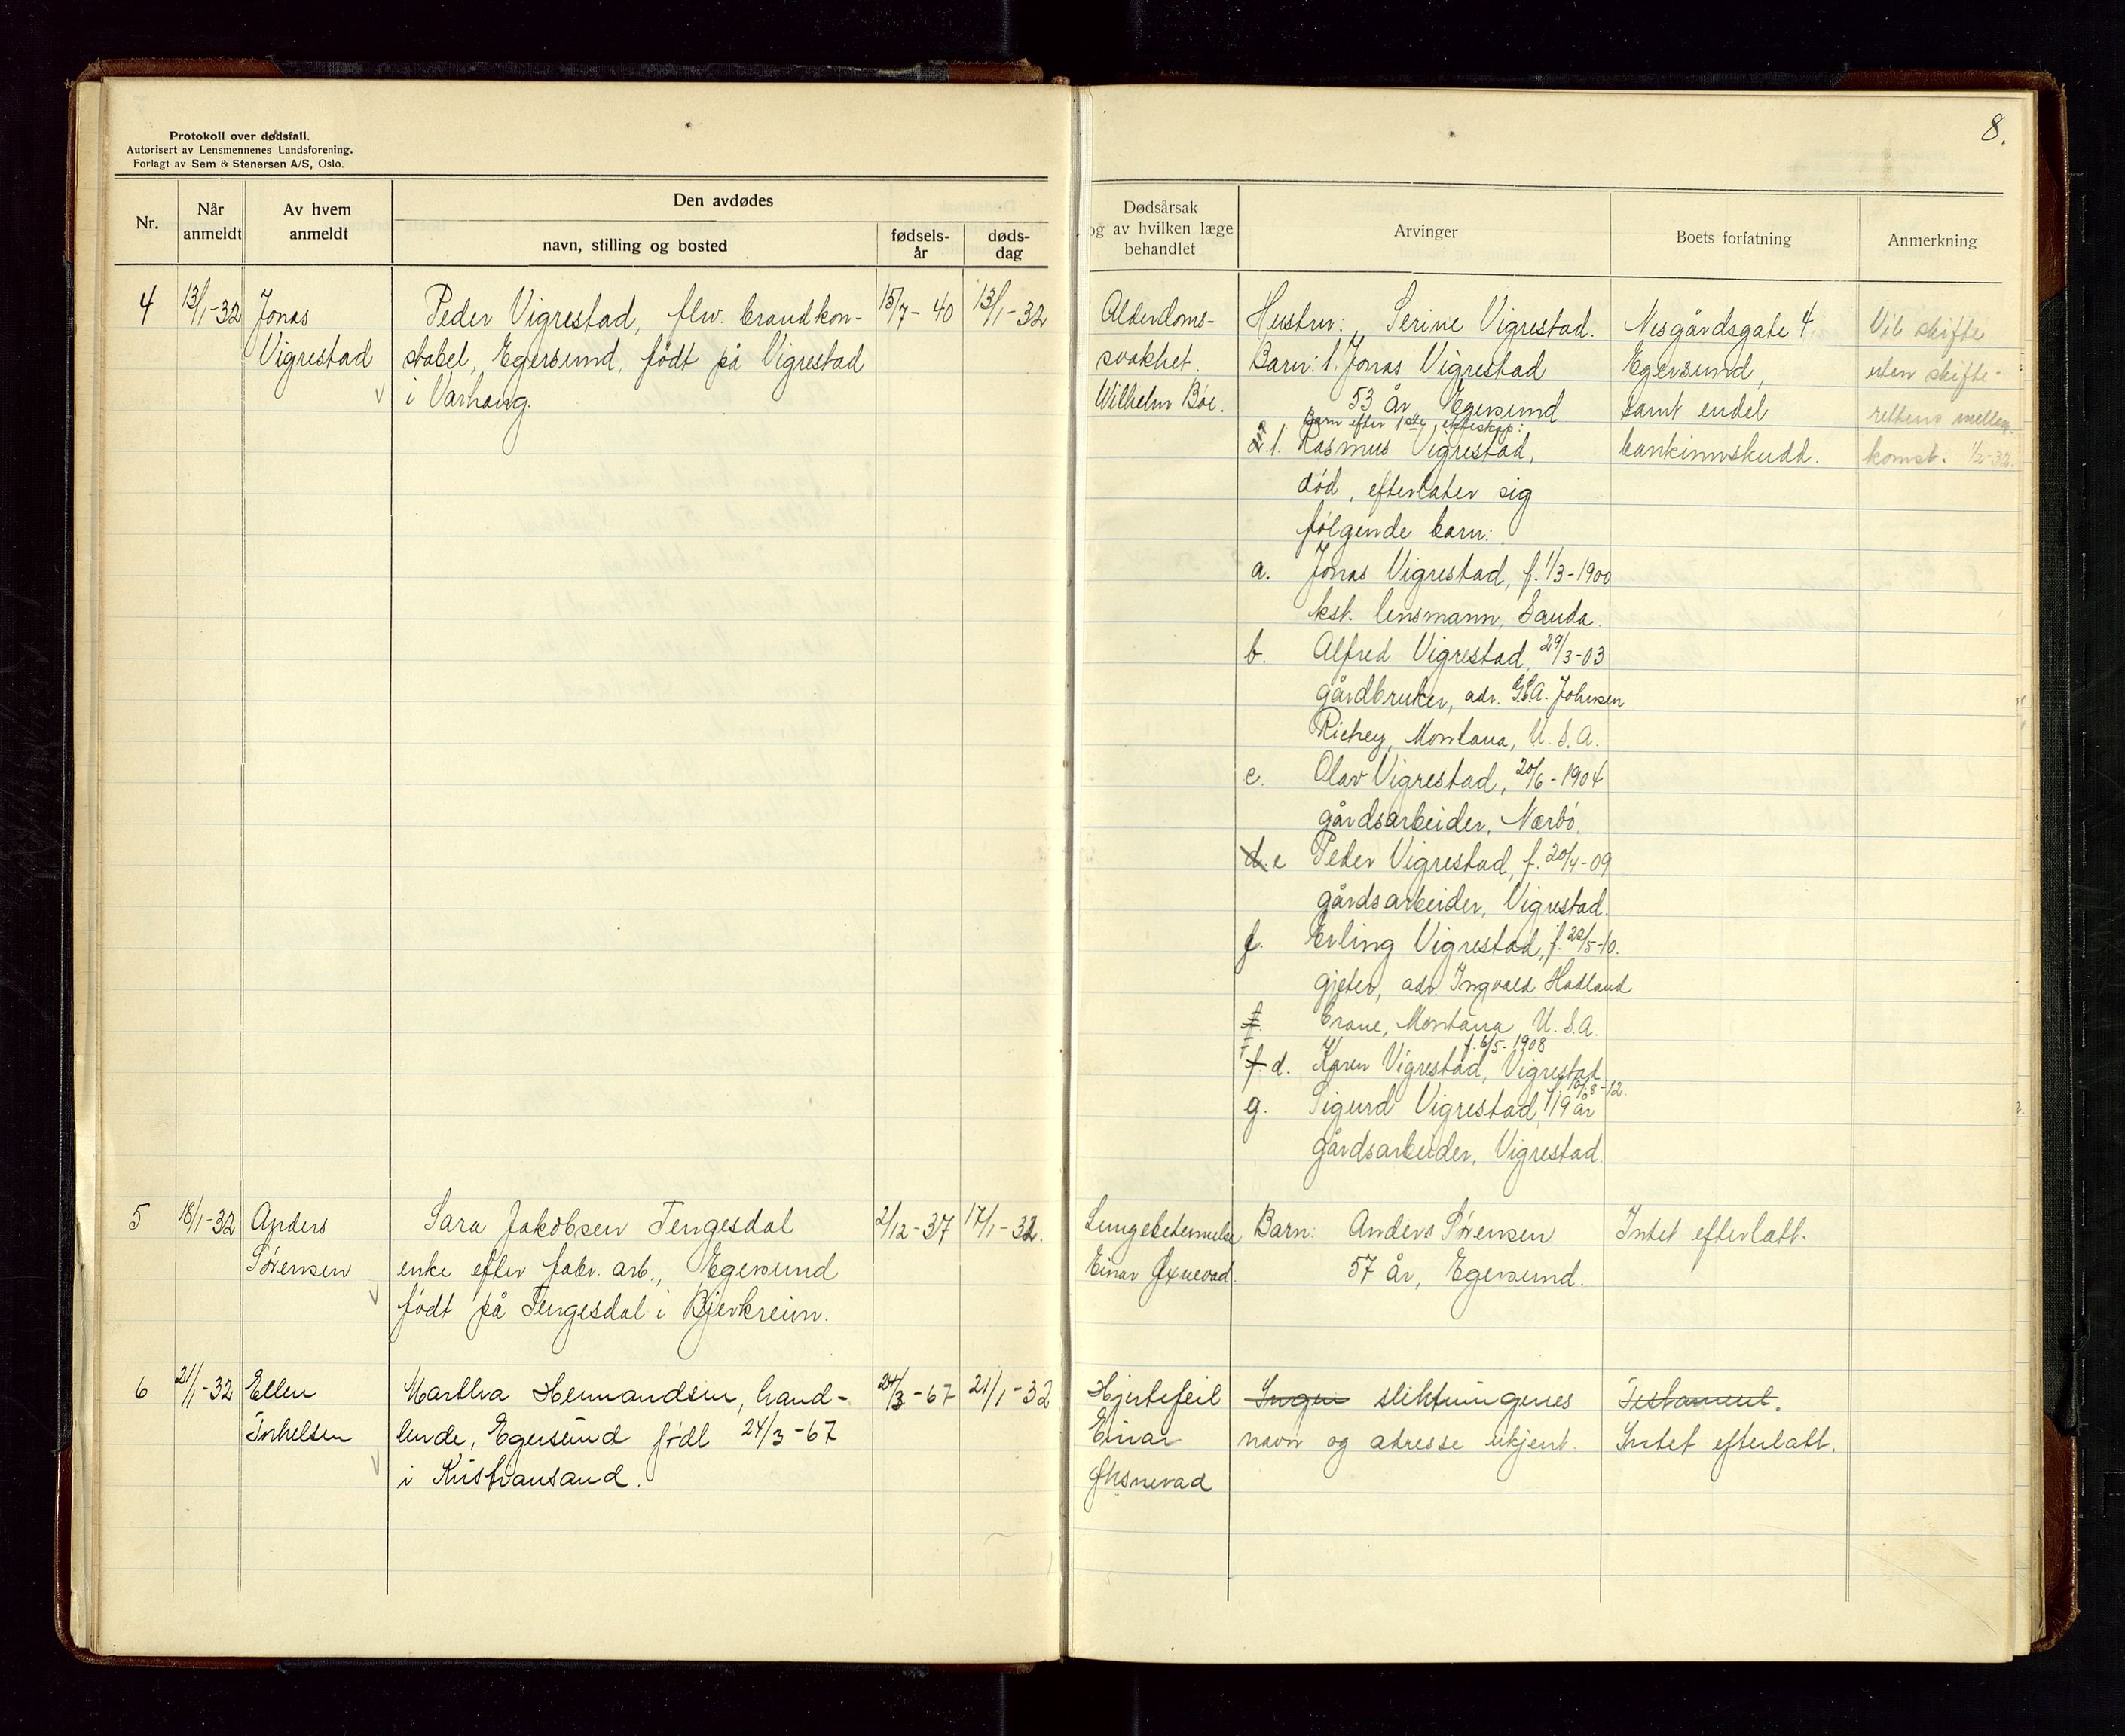 Protokoll over dødsfall.
Autorisert av Lensmennenes Landsforening.
Forlagt av Sem & Stenersen A/S, Oslo.
8.
Nr.
Når anmeldt
Av hvem anmeldt
Den avdødes
navn, stilling og bosted
fødsels-år
døds-dag
Dødsårsak
og av hvilken læge
behandlet
Arvinger
Boets forfatning
Anmerkning
4
13/1-32
Jonas
Vigrestad
Peder Vigrestad, flw. brandkon-
stabel, Egersund, født på Vigrestad
i Varhaug.
15/7-40
13/1-32
Alderdoms-
svakhet.
Wilhelm Bøe.
Hustru: Serine Vigrestad.
Barn: 1. Jonas Vigrestad
53 år, Egersund
Barn efter 1ste ekteskap:
1. Rasmus Vigrestad,
død, efterlater sig
følgende barn:
a. Jonas Vigrestad, f. 1/3-1900
kst. lensmann, Sauda.
b. Alfred Vigrestad, 29/3-03
gårdbruker, adr. Johnsen
Richey, Montana, U.S.A.
c. Olav Vigrestad, 20/6-1904
gårdsarbeider, Nærbø.
d. e Peder Vigrestad, f. 20/4-09
gårdsarbeider, Vigrestad.
f. Erling Vigrestad, f. 22/5-10.
gjeter, adr. Ingvald Hadland
f. Crane, Montana, U.S.A.
f. 6/5-1908
f. d. Karen Vigrestad, Vigrestad
f. 10/8-12.
g. Sigurd Vigrestad, 19 år
gårdsarbeider, Vigrestad.
Nesgårdsgate 4
Egersund,
samt endel
bankinnskudd.
Vil skifte
uten skifte-
rettens mellem-
komst. 1/2-32.
5
18/1-32
Anders
Sørensen
Sara Jakobsen Tengesdal
enke efter fabr. arb., Egersund
født på Tengesdal i Bjerkreim.
2/12-37
17/1-32.
Lungebetennelse
Einar Øxnevad.
Barn: Anders Sørensen
57 år, Egersund.
Intet efterlatt.
6
21/1-32
Ellen
Torkelsen
Martha Hermandsen, hand-
lende, Egersund født 24/3-67
i Kristiansand.
24/3-67
21/1-32
Hjertefeil
Einar
Øksnevad
Ingen slektningenes
navn og adresse ukjent.
Testament.
Intet efterlatt.